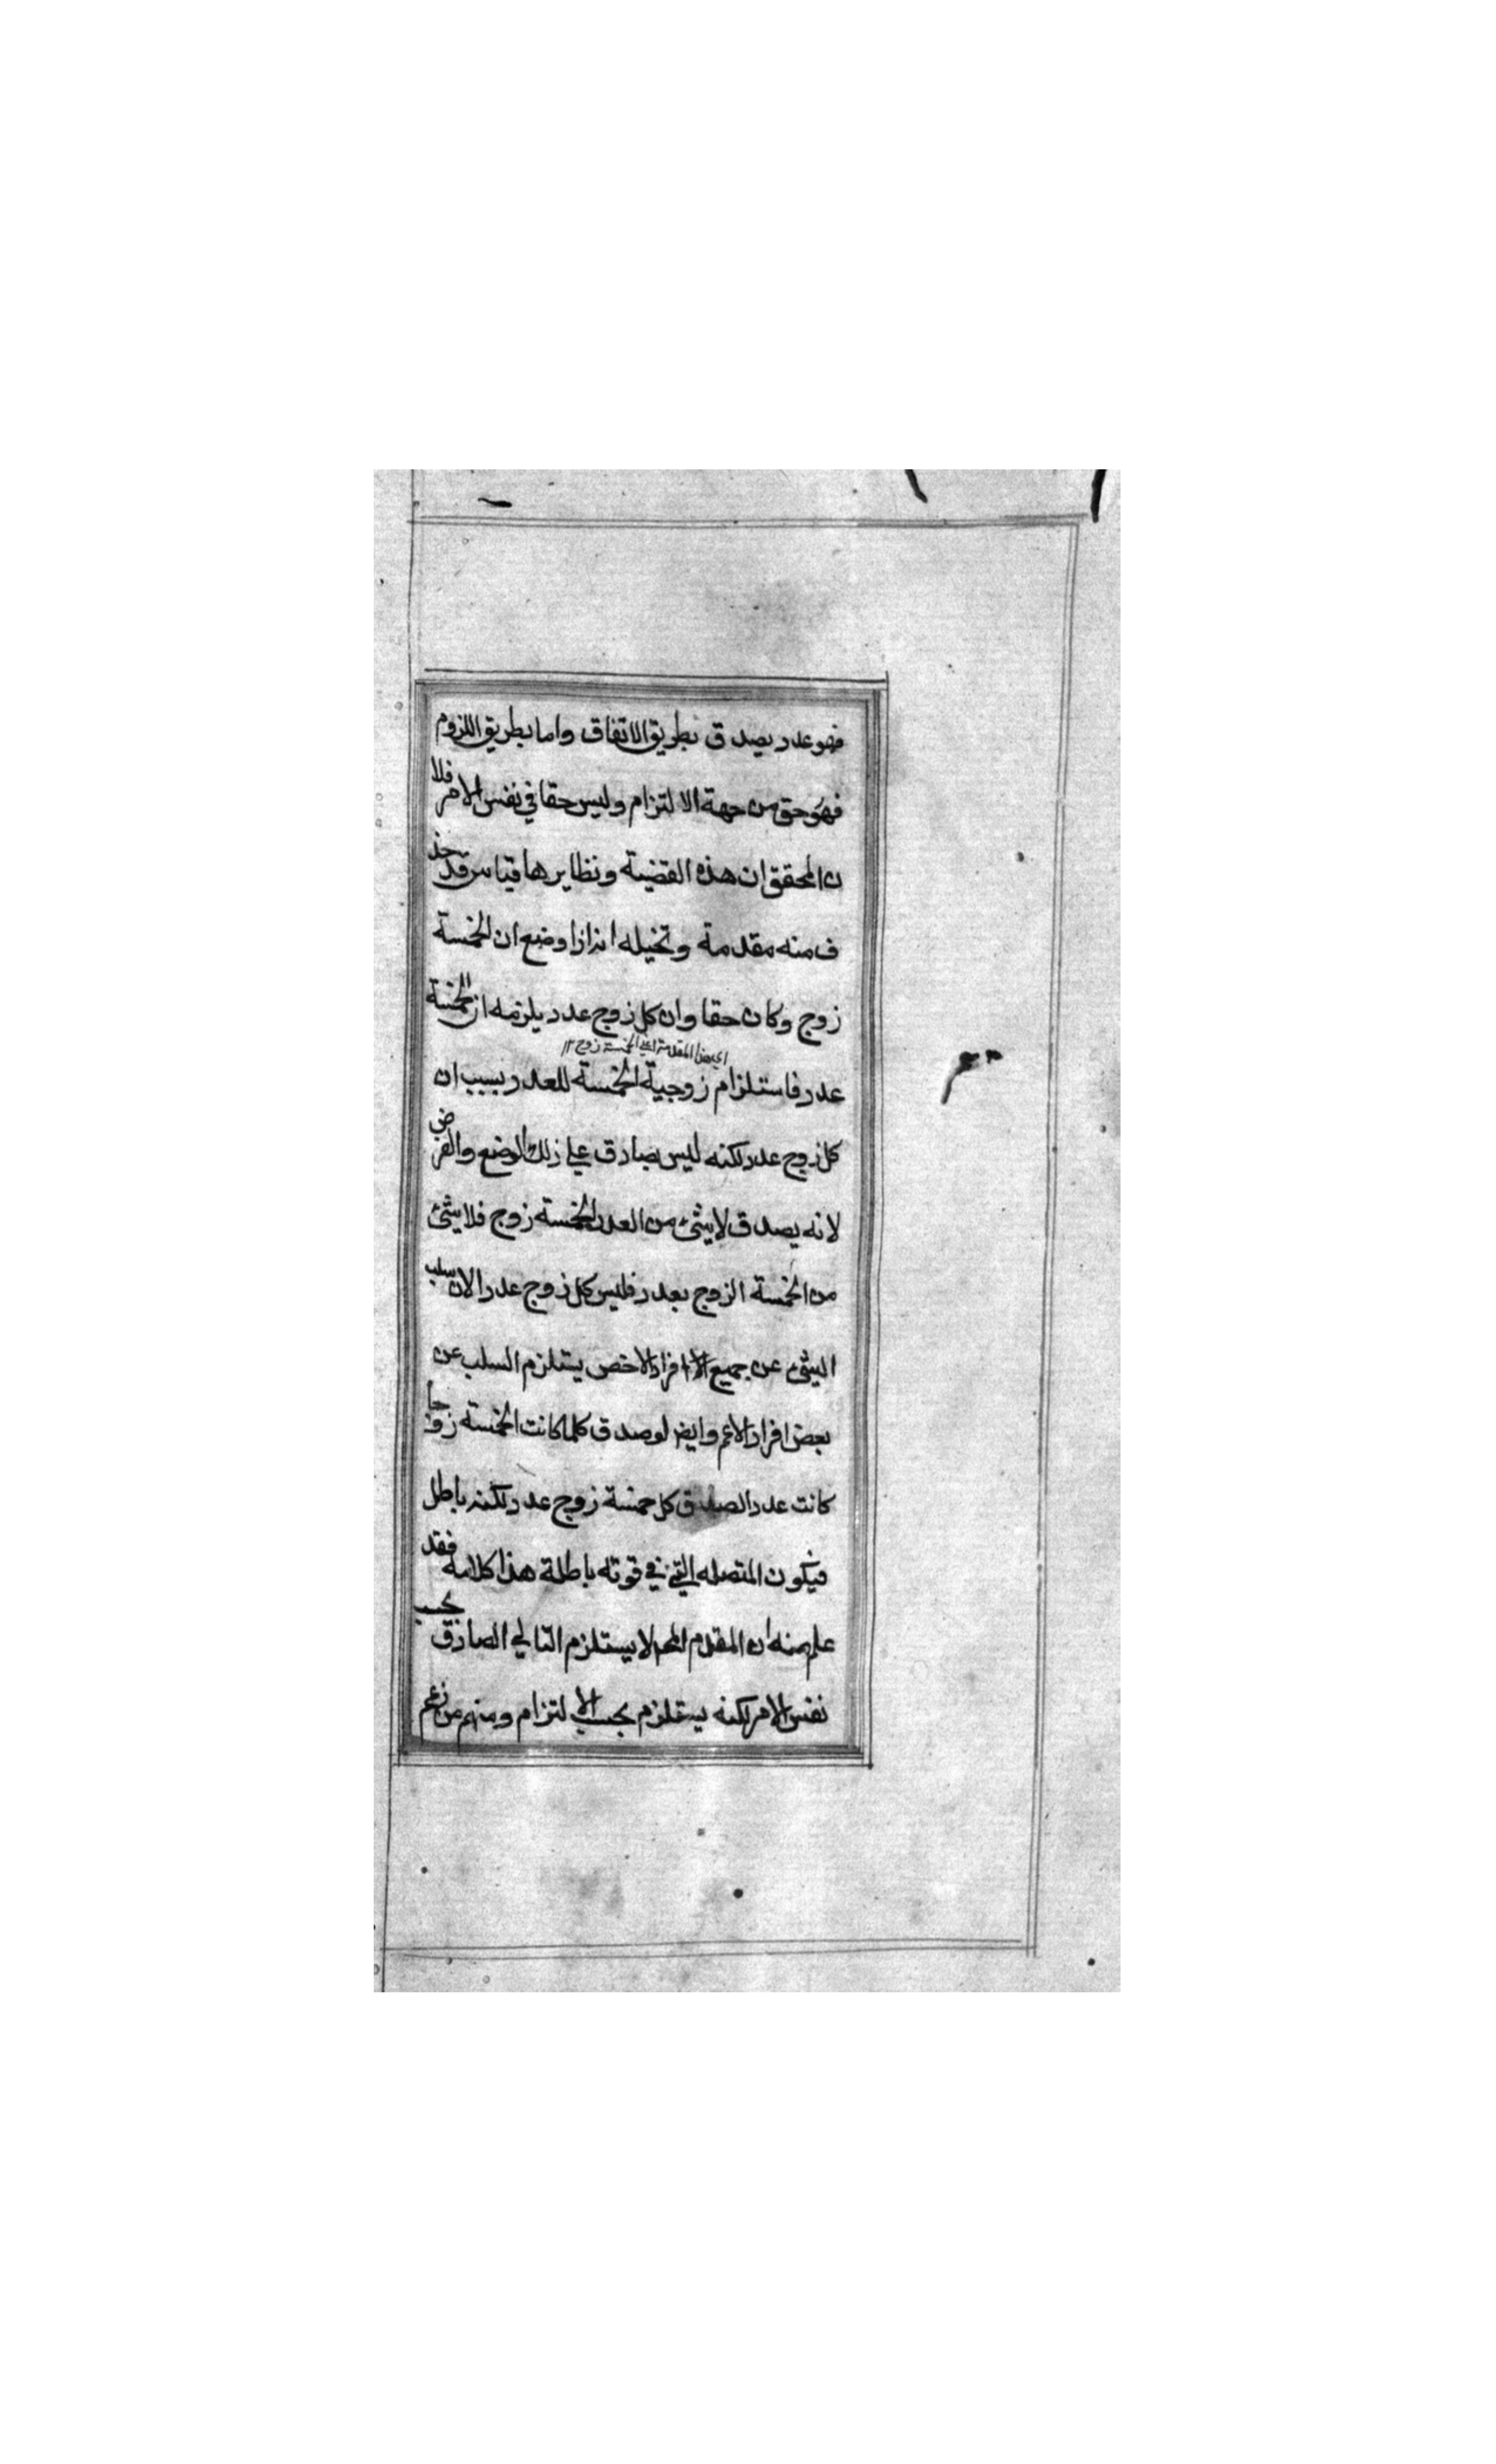 فهو عدد يصدق بطريق الاتفاق واما بطريق اللزوم
فهو حق من جهة الالتزام وليس حقا في نفس الامر فلا
ن المحقق ان هذه القضية ونظايرها قياس قد حذ
ف منه مقدمة وتخيله انه اذا وضع ان الخمسة
زوج وكان حقا وان كل زوج عدد يلزمه ان الخمسة
اي هذا المقدمة اعني الخمسة زوج ١٢
عدد فاستلزام زوجية الخمسة للعدد بسبب ان
كل زوج عدد لكنه ليس بصادق علي ذلك الوضع والفرض
لانه يصدق لا شئ من العدد الخمسة زوج فلا شئ
من الخمسة الزوج بعدد فليس كل زوج عدد الان سلب
الشئ عن جميع الافراد الاخص يستلزم السلب عن
بعض افراد الاعم وايض لو صدق كلما كانت الخمسة زوجا
كانت عددا لصدق كل خمسة زوج عدد لكنه باطل
فيكون المتصله التي في قوته باطلة هذا كلامه فقد
علم منه ان المقدم المح لا يستلزم التالي الصادق بحسب
نفس الامر لكنه يستلزم بحسب الالتزام ومنهم من زعم